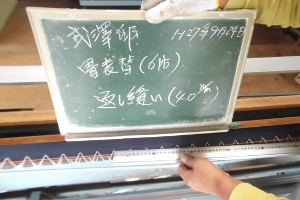 武澤邸 H27年9月24日
畳表替(6帖)
返し縫い(40